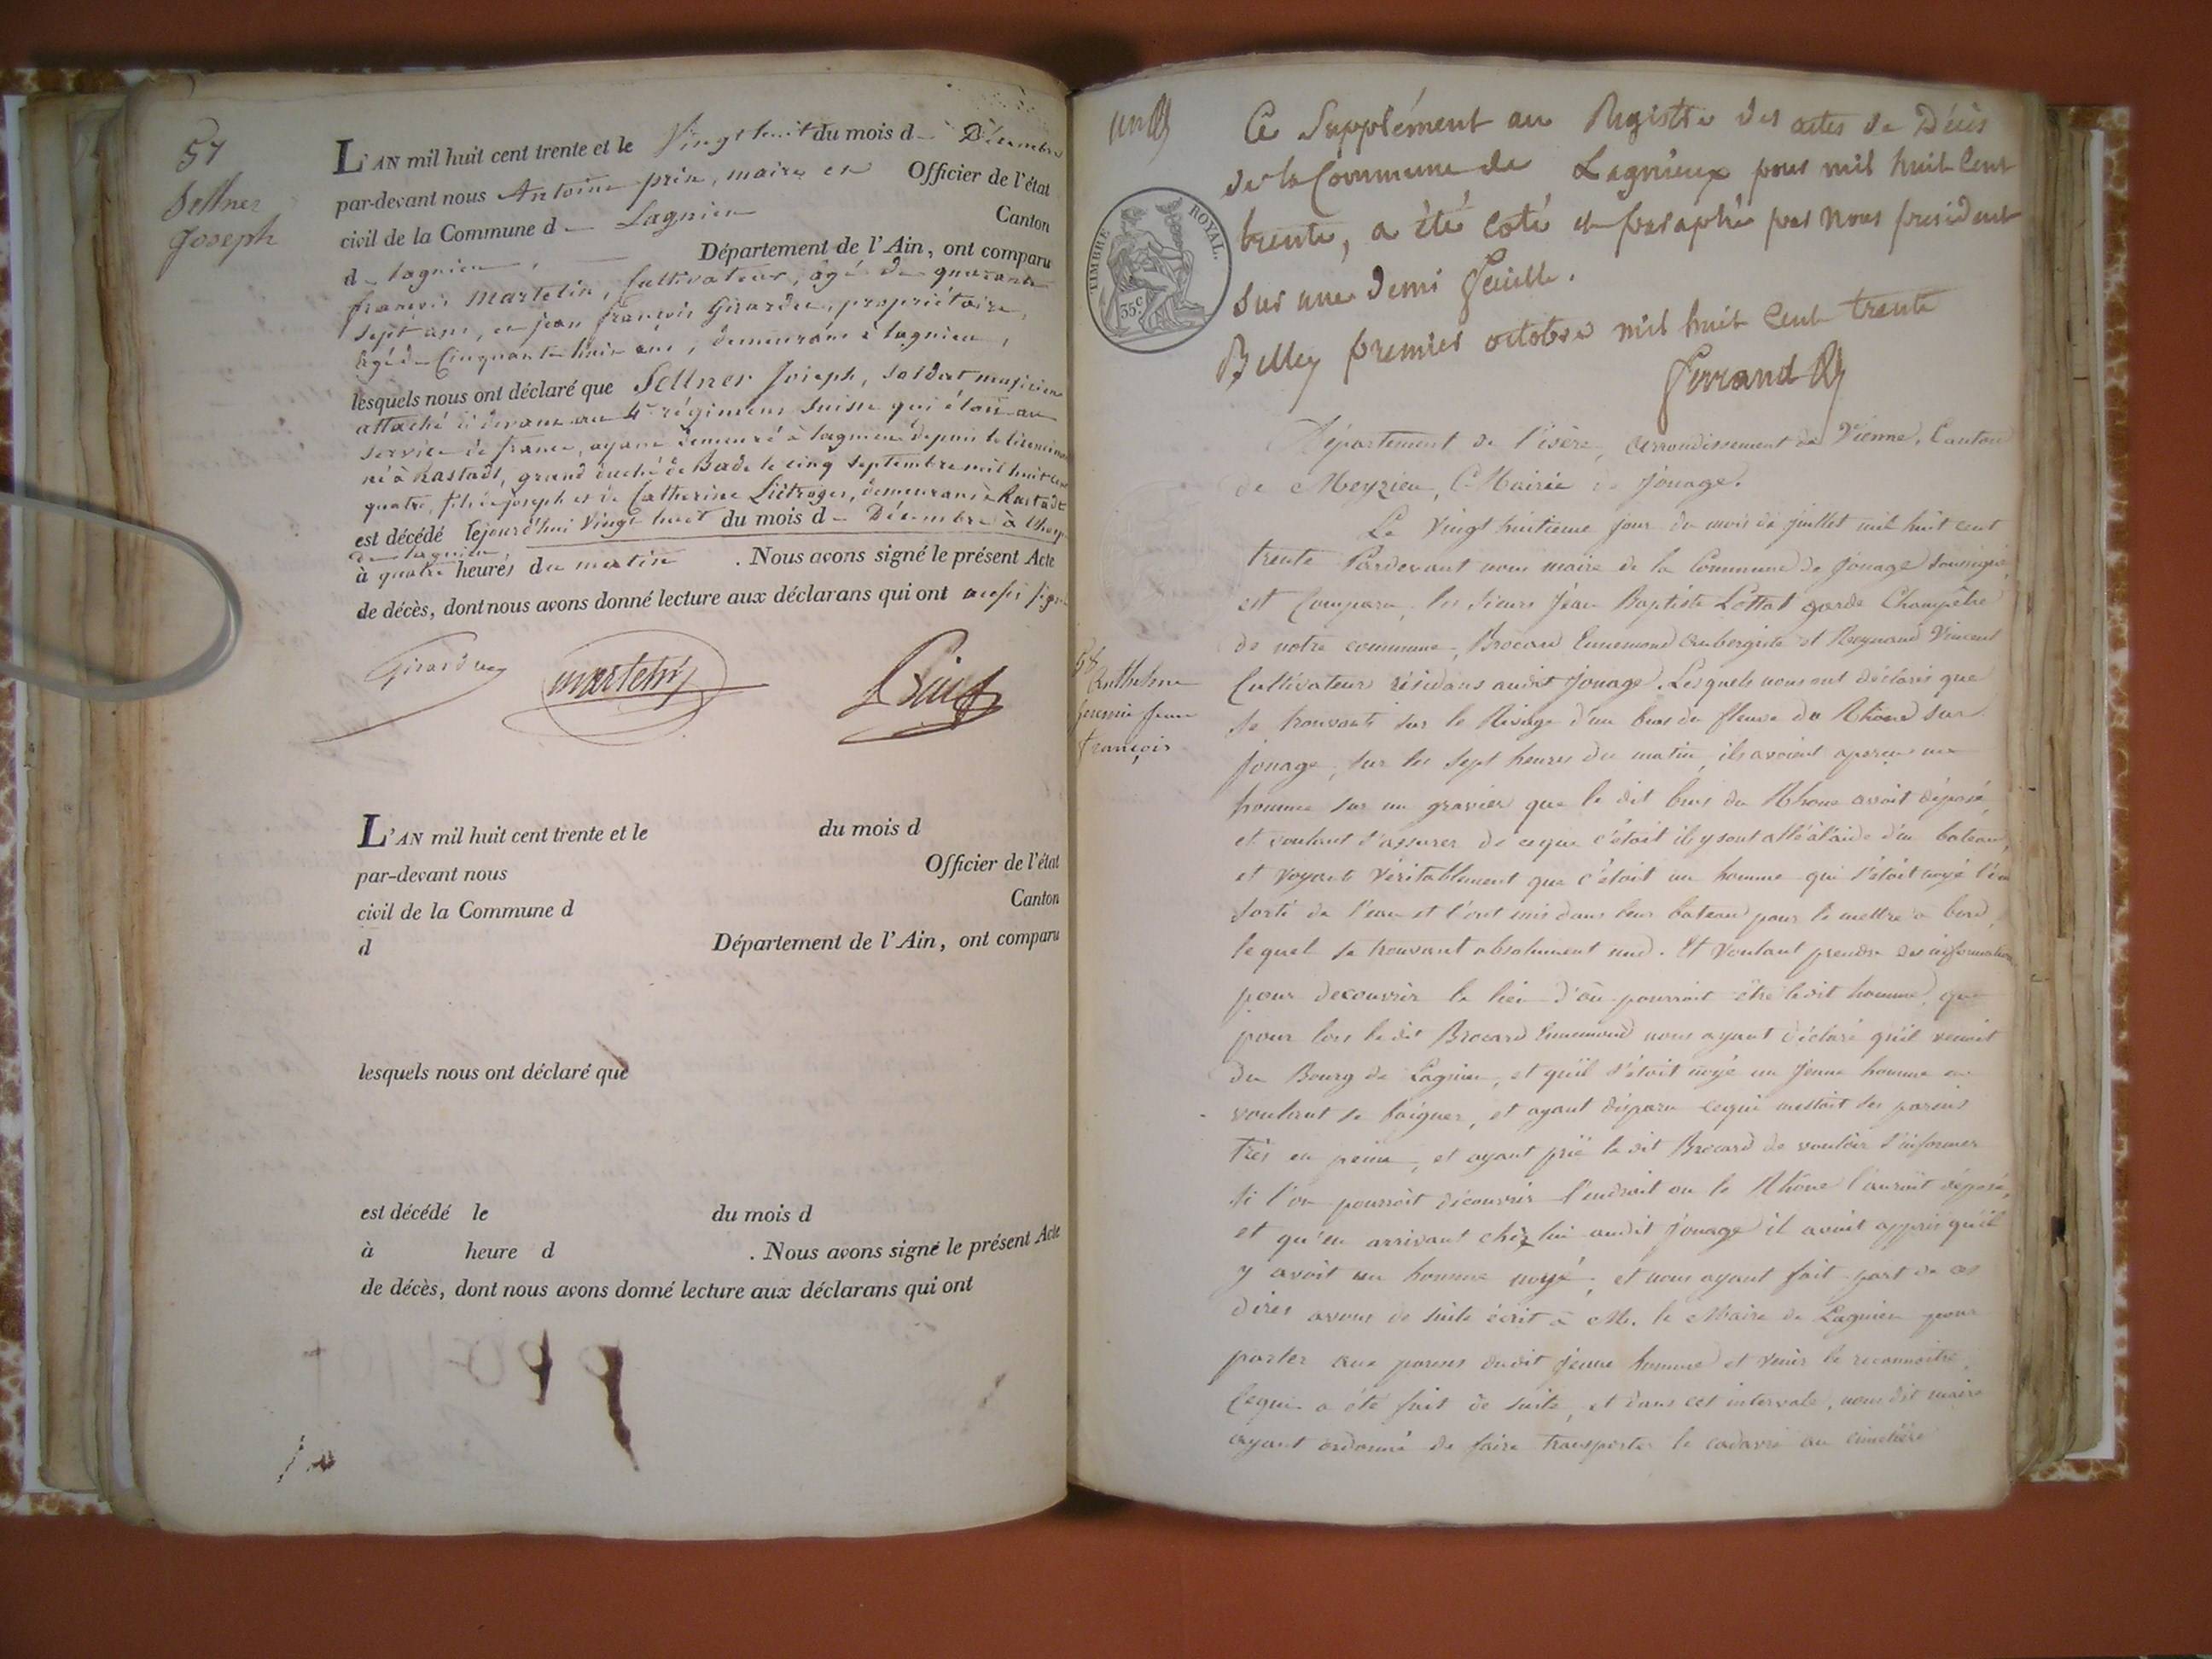 57
Sellner
Joseph
L'AN mil huit cent trente et le Vingt huit du mois d- Décembre
par-devant nous Antoine prin, maire et Officier de l'état
civil de la Commune d- Lagnieu Canton
d- lagnieu, Département de l'Ain, ont comparu
françois Martelin, Cultivateur, âgé de quarante
sept ans, et jean françois Girardu, propriétaire,
âgé de Cinquante huit ans, demeurans à lagnieu,
lesquels nous ont déclaré que Sellner Joseph, soldat musicien
attaché ci devant au 4e régiment Suisse qui étoit au
service de france, ayant demeuré à lagnieu depuis le
né à Rastadt, grand duché de Bade le cinq septembre mil huit cent
quatre, fils de joseph et de Catherine demeurans à Rastadt
est décédé cejourd'hui Vingt huit du mois d- Décembre à
de lagnieu,
à quatre heures du matin. Nous avons signé le présent Acte
de décès, dont nous avons donné lecture aux déclarans qui ont aussi signé
martelin
Prin
L'AN mil huit cent trente et le du mois d
par-devant nous Officier de l'état
civil de la Commune d Canton
d Département de l'Ain, ont comparu
lesquels nous ont déclaré que
est décédé le du mois d
à heure d . Nous avons signé le présent Acte
de décès, dont nous avons donné lecture aux déclarans qui ont
Ce Supplément au Registre des actes de Décès
de la Commune de Lagnieux pour mil huit Cent
trente, a été coté et paraphé par nous president
sur une demi feuille.
Belley premier octobre mil huit Cent trente
TIMBRE ROYAL.
35c
Ferrand
Département de l'isère, arrondissement de Vienne, Canton
de Meyzieu, Mairie de Jonage.
Le Vingt huitieme jour du mois de juillet mil huit cent
trente Pardevant nous maire de la Commune de Jonage soussigné,
est Comparu, les sieurs Jean Baptiste Lottat garde Champêtre
de notre commune, Brocard Ennemond aubergiste et Reynaud Vincent
58
Anthelme
Jeune Jean
François
Cultivateur résidans audit Jonage. Lesquels nous ont déclarés que
se trouvants sur le Rivage d'un bras du fleuve du Rhône sur
Jonage, sur les sept heures du matin, ils avoient aperçu un
homme sur un gravier que le dit bras du Rhone avoit déposé,
et voulant s'assurer de ce que c'étoit ils y sont allé à l'aide d'un bateau,
et Voyants Véritablement que c'étoit un homme qui s'étoit noyé l'on
sorti de l'eau et l'ont mis dans leur bateau pour le mettre à bord,
lequel se trouvant absolument nud. Et Voulant prendre des informations
pour decouvrir le lieu d'où pourroit être ledit homme, que
pour lors ledit Brocard Ennemond nous ayant déclaré qu'il venoit
du Bourg de Lagnieu, et qu'il s'étoit noyé un jeune homme en
voulant se baigner, et ayant disparu cequi mettoit ses parens
très en peine, et ayant prié ledit Brocard de vouloir s'informer
si l'on pourroit découvrir l'endroit ou le Rhône l'auroit déposé,
et qu'en arrivant chez lui audit Jonage il avoit appris qu'il
y avoit un homme noyé, et nous ayant fait part de ces
dires avons de suite écrit à M. le Maire de Lagnieu pour
parler aux parens dudit jeune homme et venir le reconnoitre,
Cequi a été fait de suite, et dans cet intervale, nous dit maire
ayant ordonné de faire transporter le cadavre au cimetière